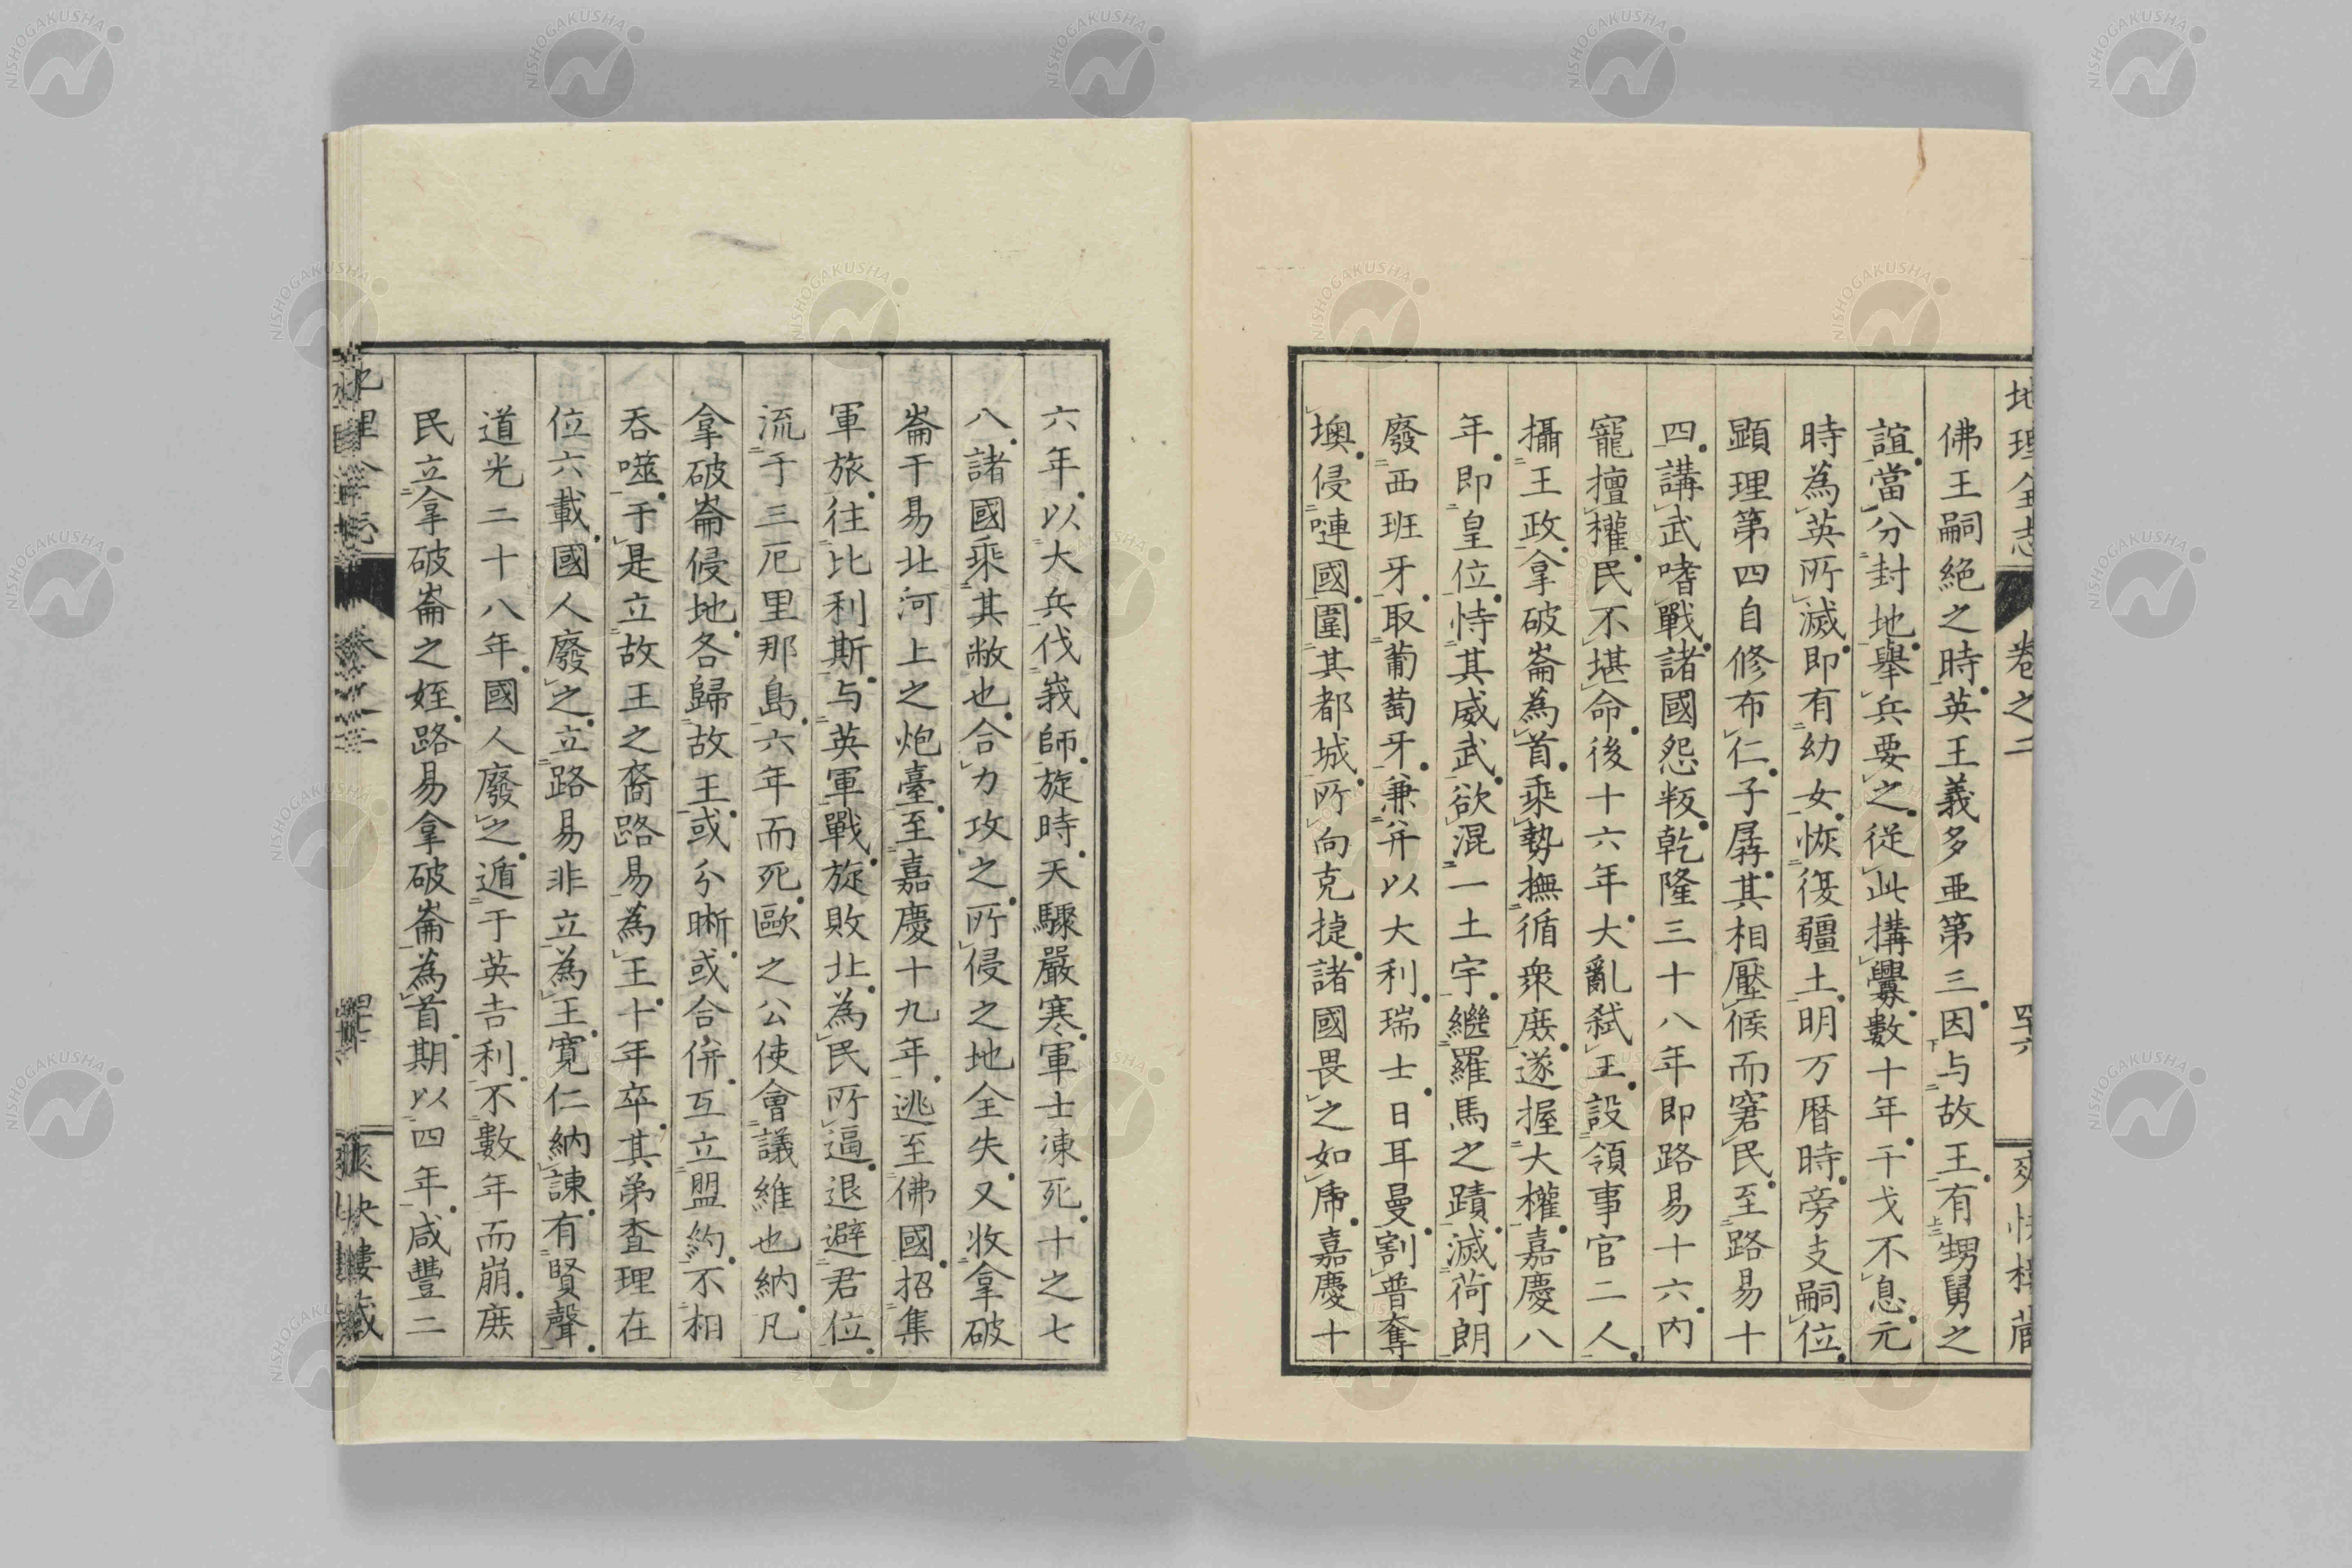 地理全志 卷之二 四十六 爽快樓藏
佛王嗣絕之時英王義多亜第三因与故王有甥舅之
誼當分封地舉兵要之從此搆釁數十年干戈不息元
時為英所滅即有幼女恢復疆土明万暦時旁支嗣位
顕理第四自修布仁子孱其相壓候而窘民至路易十
四講武嗜戰諸國怨叛乾隆三十八年即路易十六内
寵擅權民不堪命後十六年大亂弑王設領事官二人
攝王政拿破崙為首乘勢撫循衆庻遂握大權嘉慶八
年即皇位恃其威武欲混一土宇繼羅馬之蹟滅荷朗
廢西班牙取葡萄牙兼并以大利瑞士日耳曼割普奪
墺侵嗹國圍其都城所向克捷諸國畏之如虎嘉慶十
六年以大兵伐峩師旋時天驟嚴寒軍士凍死十之七
八諸國乘其敝也合力攻之所侵之地全失又收拿破
崙干易北河上之炮臺至嘉慶十九年逃至佛國招集
軍旅往比利斯与英軍戰旋敗北為民所逼退避君位
流于三厄里那島六年而死歐之公使會議維也納凡
拿破崙侵地各歸故王或分晰或合併互立盟約不相
吞噬于是立故王之裔路易為王十年卒其弟査理在
位六載國人廢之立路易非立為王寛仁納諌有賢聲
道光二十八年國人廢之遁于英吉利不數年而崩庻
民立拿破崙之姪路易拿破崙為首期以四年咸豐二
地理全志 卷之二 爽快樓藏
NISHOGAKUSHA